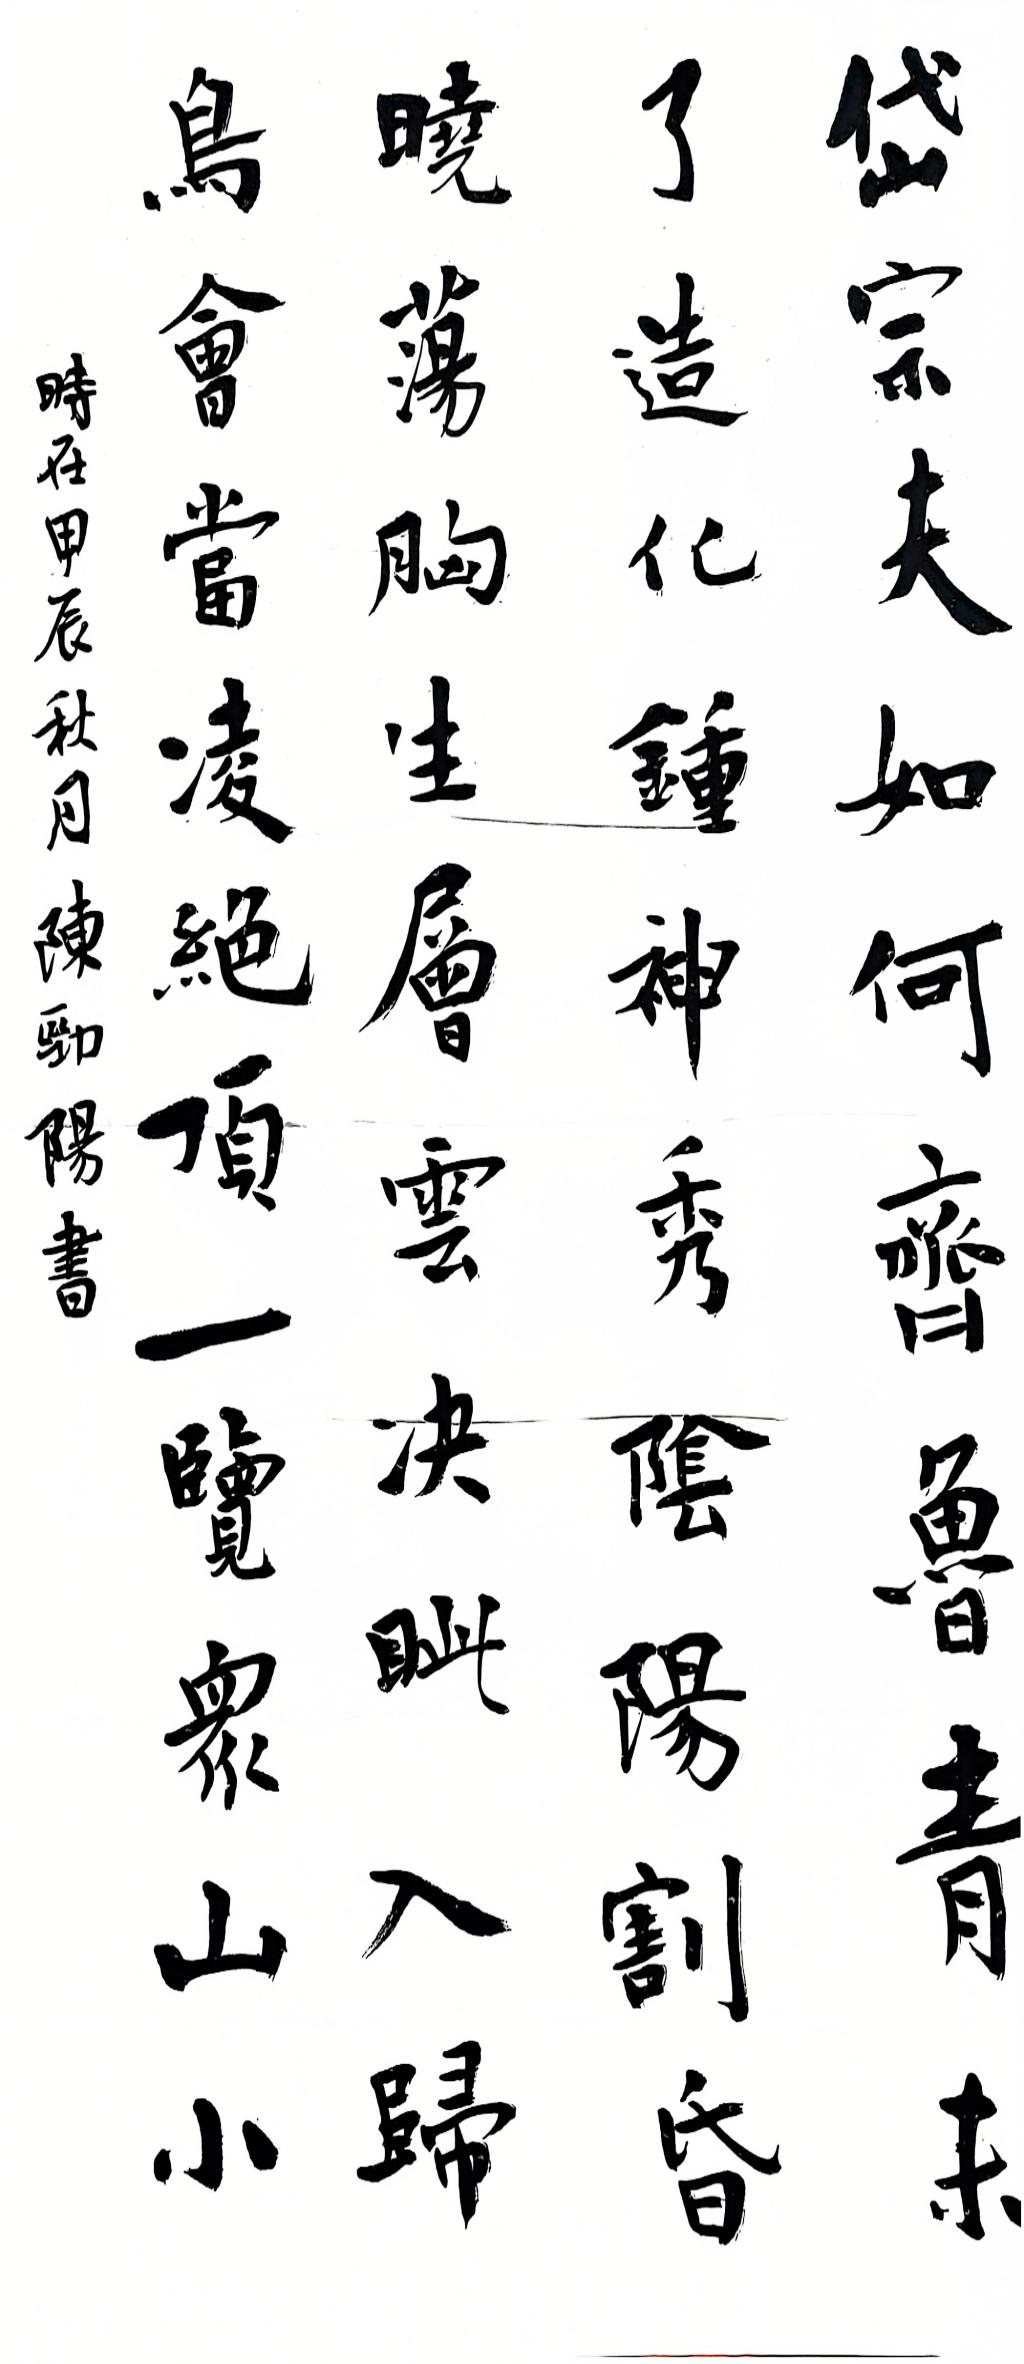 岱宗夫如何齊魯青未
了造化鍾神秀陰陽割昏
曉蕩胸生層雲決眦入歸
鳥會當凌絕頂一覽眾山小
時在甲辰秋月陳勁陽書